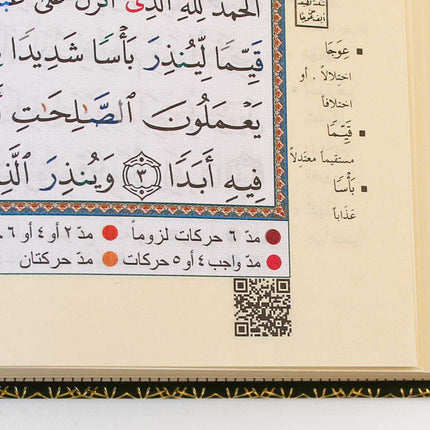 الحمد لله الذي أنزل على
قَيِّمًا لِّيُنذِرَ بَأْسًا شَدِيدًا
يَعْمَلُونَ ٱلصَّٰلِحَٰتِ
فِيهِ أَبَدًا ٣ وَيُنذِرَ
عِوَجَا
اختلالاً . أو
اختلافاً
قَيِّمَا
مستقيماً معتدلاً
بَأْسًا
عَذَاباً
مدّ ٦ حركات لزوماً مدّ ٢ أو ٤ أو ٦
مدّ واجب ٤ أو ٥ حركات مدّ حركتان